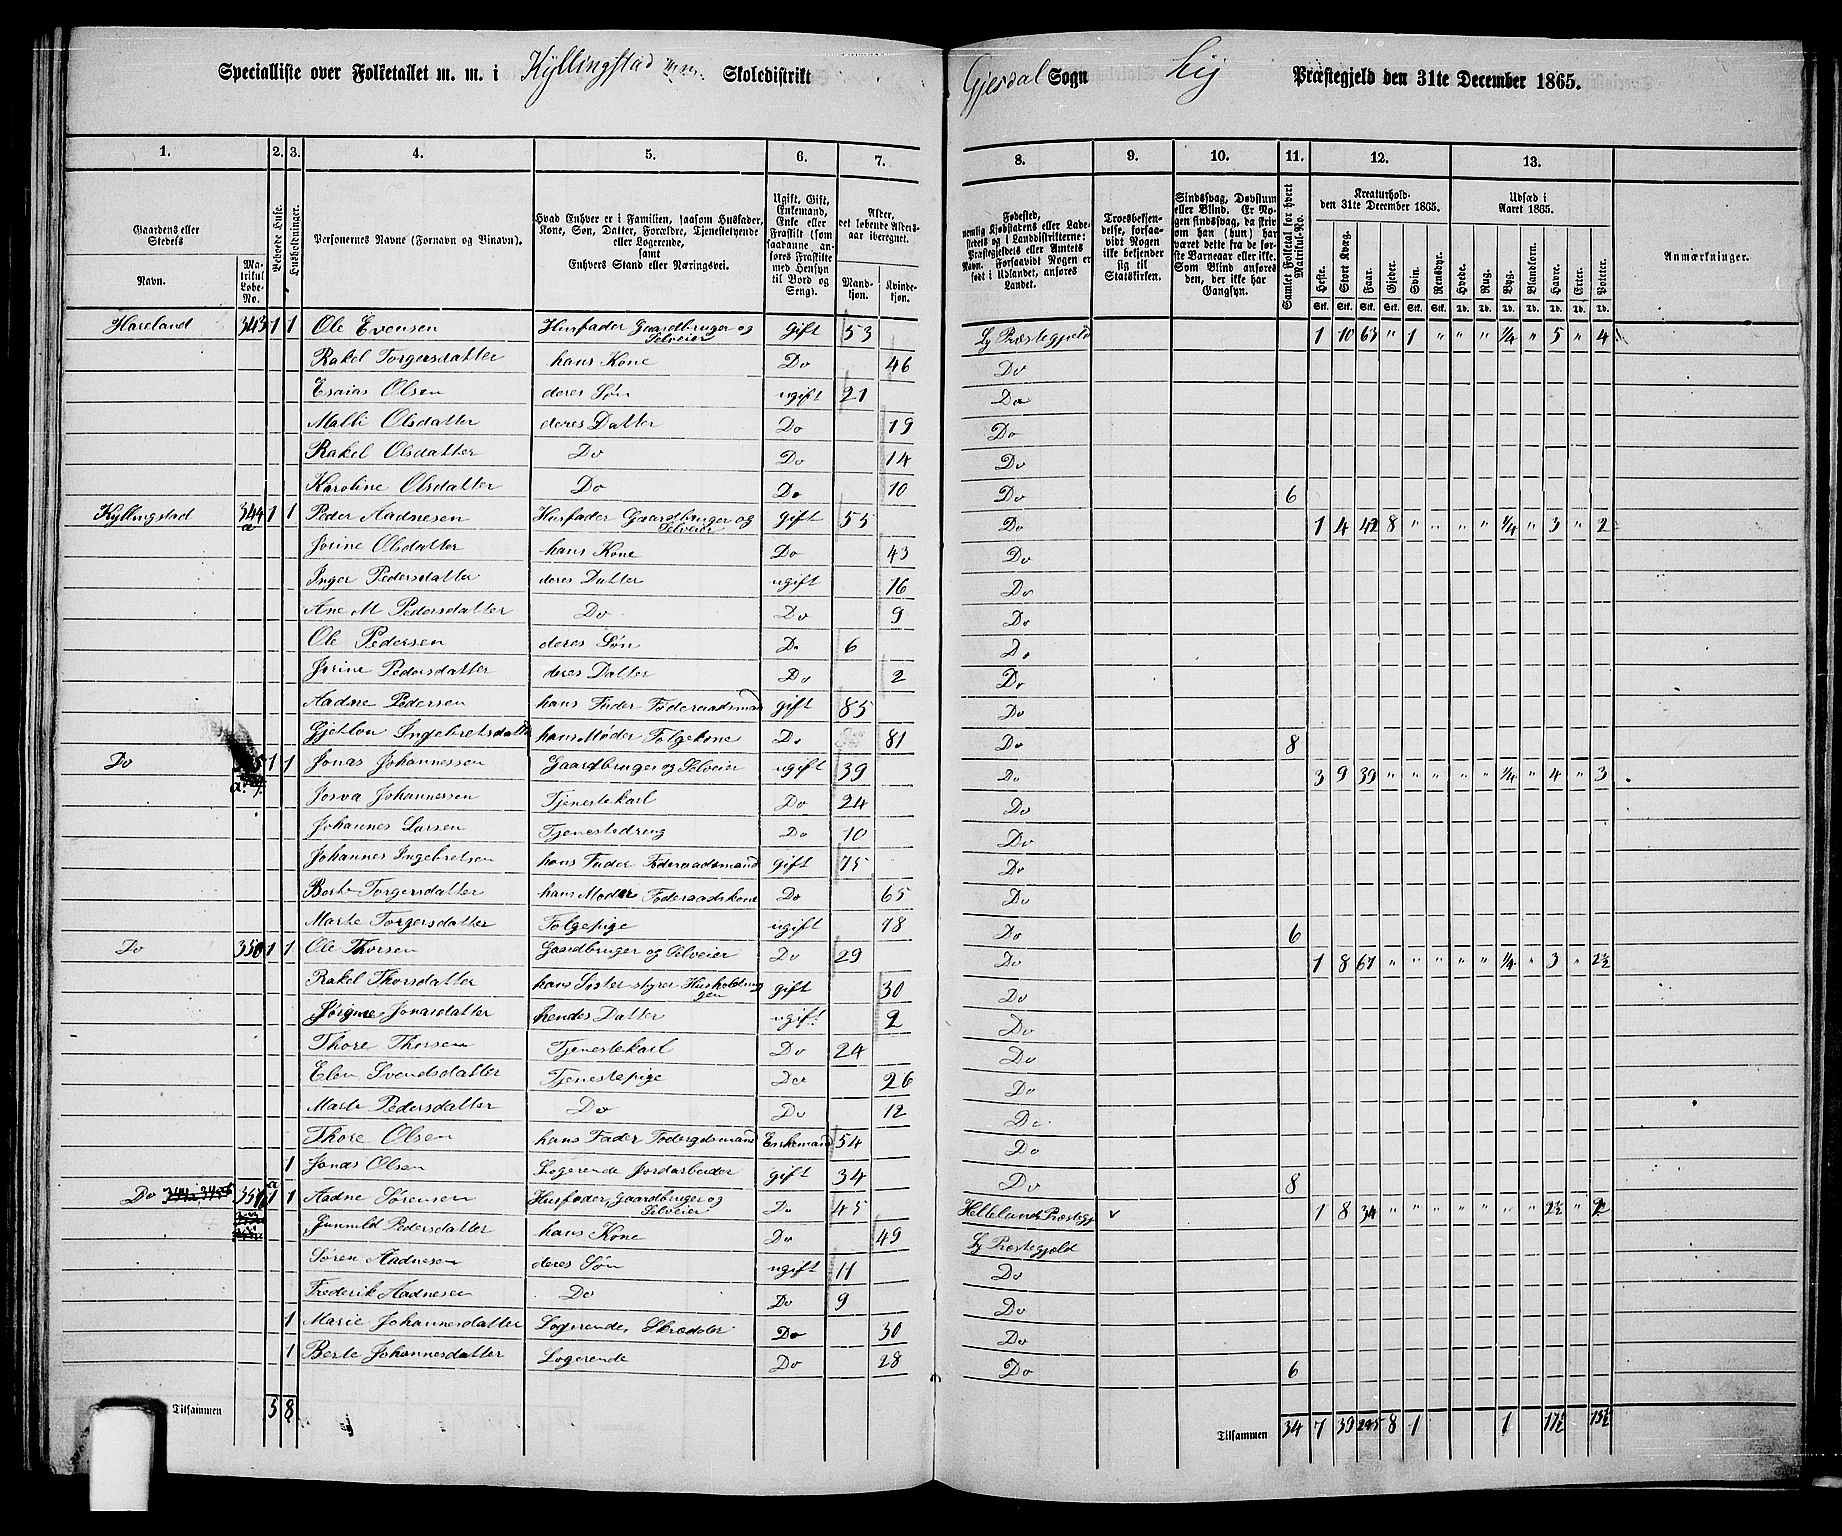 Specialliste over Folketallet m. m. i Kyllingstad m.m. Skoledistrikt Gjesdal Sogn Lÿ Præstegjeld den 31te December 1865.
1. 2. 3. 4. 5. 6. 7. 8. 9. 10. 11. 12. 13.
Gaardens eller Stedets
Navn. Matrikul Løbe-No.
Beboede Huse.
Husholdninger.
Personernes Navne (Fornavn og Tilnavn).
Hvad Enhver er i Familien, saasom Husfader, Kone, Søn, Datter, Forældre, Tjenestetyende eller Logerende, samt Enhvers Stand eller Næringsvei.
Ugift, Gift, Enkemand, Enke eller Fraskilt (som saadanne anføres Fraskilte med Hensyn til Bord og Seng).
Alder, det løbende Aldersaar iberegnet.
Mandkjøn. Kvindekjøn.
Fødested, nemlig Kjøbstadens eller Ladestedets og i Landdistrikterne: Præstegjeldets eller Amtets Navn. Forsaavidt Nogen er født i Udlandet, anføres Landet.
Troesbekjendelse, forsaavidt Nogen ikke bekjender sig til Statskirken.
Sindssvag, Døvstum eller Blind. Er Nogen sindssvag, da skrives om han (hun) har været dette fra de første Barneaar eller ikke. Som Blind anføres den, der ikke har Gangsyn.
Samlet Folketal for hvert Matrikul-No.
Kreaturhold den 31te December 1865.
Heste. Stort Kvæg. Faar. Gjeder. Svin. Rensdyr.
Udsæd i Aaret 1865.
Hvede. Rug. Byg. Blandkorn. Havre. Erter. Poteter.
Anmærkninger.
Stk. Stk. Stk. Stk. Stk. Stk. Td. Td. Td. Td. Td. Td. Td.
Hareland 343 1 1 Ole Evensen Husfader Gaardbruger og Selveier gift 53 Ly Præstegjeld 1 10 63 " 1 " " " 1/4 " 5 " 4
Rakel Torgersdatter hans Kone Do 46 Do
Esaias Olsen deres Søn ugift 21 Do
Malli Olsdatter deres Datter Do 19 Do
Rakel Olsdatter Do Do 14 Do
Karoline Olsdatter Do Do 10 Do 6
Kyllingstad 344 a 1 1 Peder Aadnesen Husfader Gaardbruger og Selveier gift 55 Do 1 4 42 8 " " " " 1/4 " 3 " 2
Jorine Olsdatter hans Kone Do 43 Do
Inger Pedersdatter deres Datter ugift 16 Do
Ane M Pedersdatter Do Do 9 Do
Ole Pedersen deres Søn Do 6 Do
Jorine Pedersdatter deres Datter Do 2 Do
Aadne Pedersen hans Fader Føderaadsmand gift 85 Do
Ingebretsdatter hans Moder Folgekone Do 81 Do 8
Do 1 1 Jonas Johannessen Gaardbruger og Selveier ugift 39 Do 3 9 39 " " " " " 1/4 " 4 " 3
Josva Johannessen Tjenestekarl Do 24 Do
Johannes Larsen Tjenestedreng Do 10 Do
Johannes Ingebretsen hans Fader Føderaadsmand gift 75 Do
Berte Torgersdatter hans Moder Føderaadskone Do 65 Do
Marte Torgersdatter Folgepige ugift 78 Do 6
Do 350 1 1 Ole Thorsen Gaardbruger og Selveier Do 29 Do 1 8 67 " " " " " 1/4 " 3 " 2 1/2
Rakel Thorsdatter hans Søster styrer Husholdningen gift 30 Do
Jonasdatter hendes Datter ugift 2 Do
Thore Thorsen Tjenestekarl Do 24 Do
Elen Svendsdatter Tjenestepige Do 26 Do
Marte Pedersdatter Do Do 12 Do
Thore Olsen hans Fader Enkemand 54 Do
1 Jonas Olsen Logerende Jordarbeider gift 34 Do 8
Do 351 a 1 1 Aadne Sørensen Husfader, Gaardbruger og Selveier Do 45 Hellelands Præstegj v 1 8 34 " " " " " " " 2 1/2 " 2
Gunnild Pedersdatter hans Kone Do 49 Ly Præstegjeld
Søren Aadnesen deres Søn ugift 11 Do
Frederik Aadnesen Do Do 9 Do
1 Marie Johannesdatter Logerende, Skrædder Do 30 Do
1 Berte Johannesdatter Logerende Do 28 Do 6
Tilsammen 5 8 Tilsammen 34 7 39 245 8 1 1 17 1/2 13 1/2